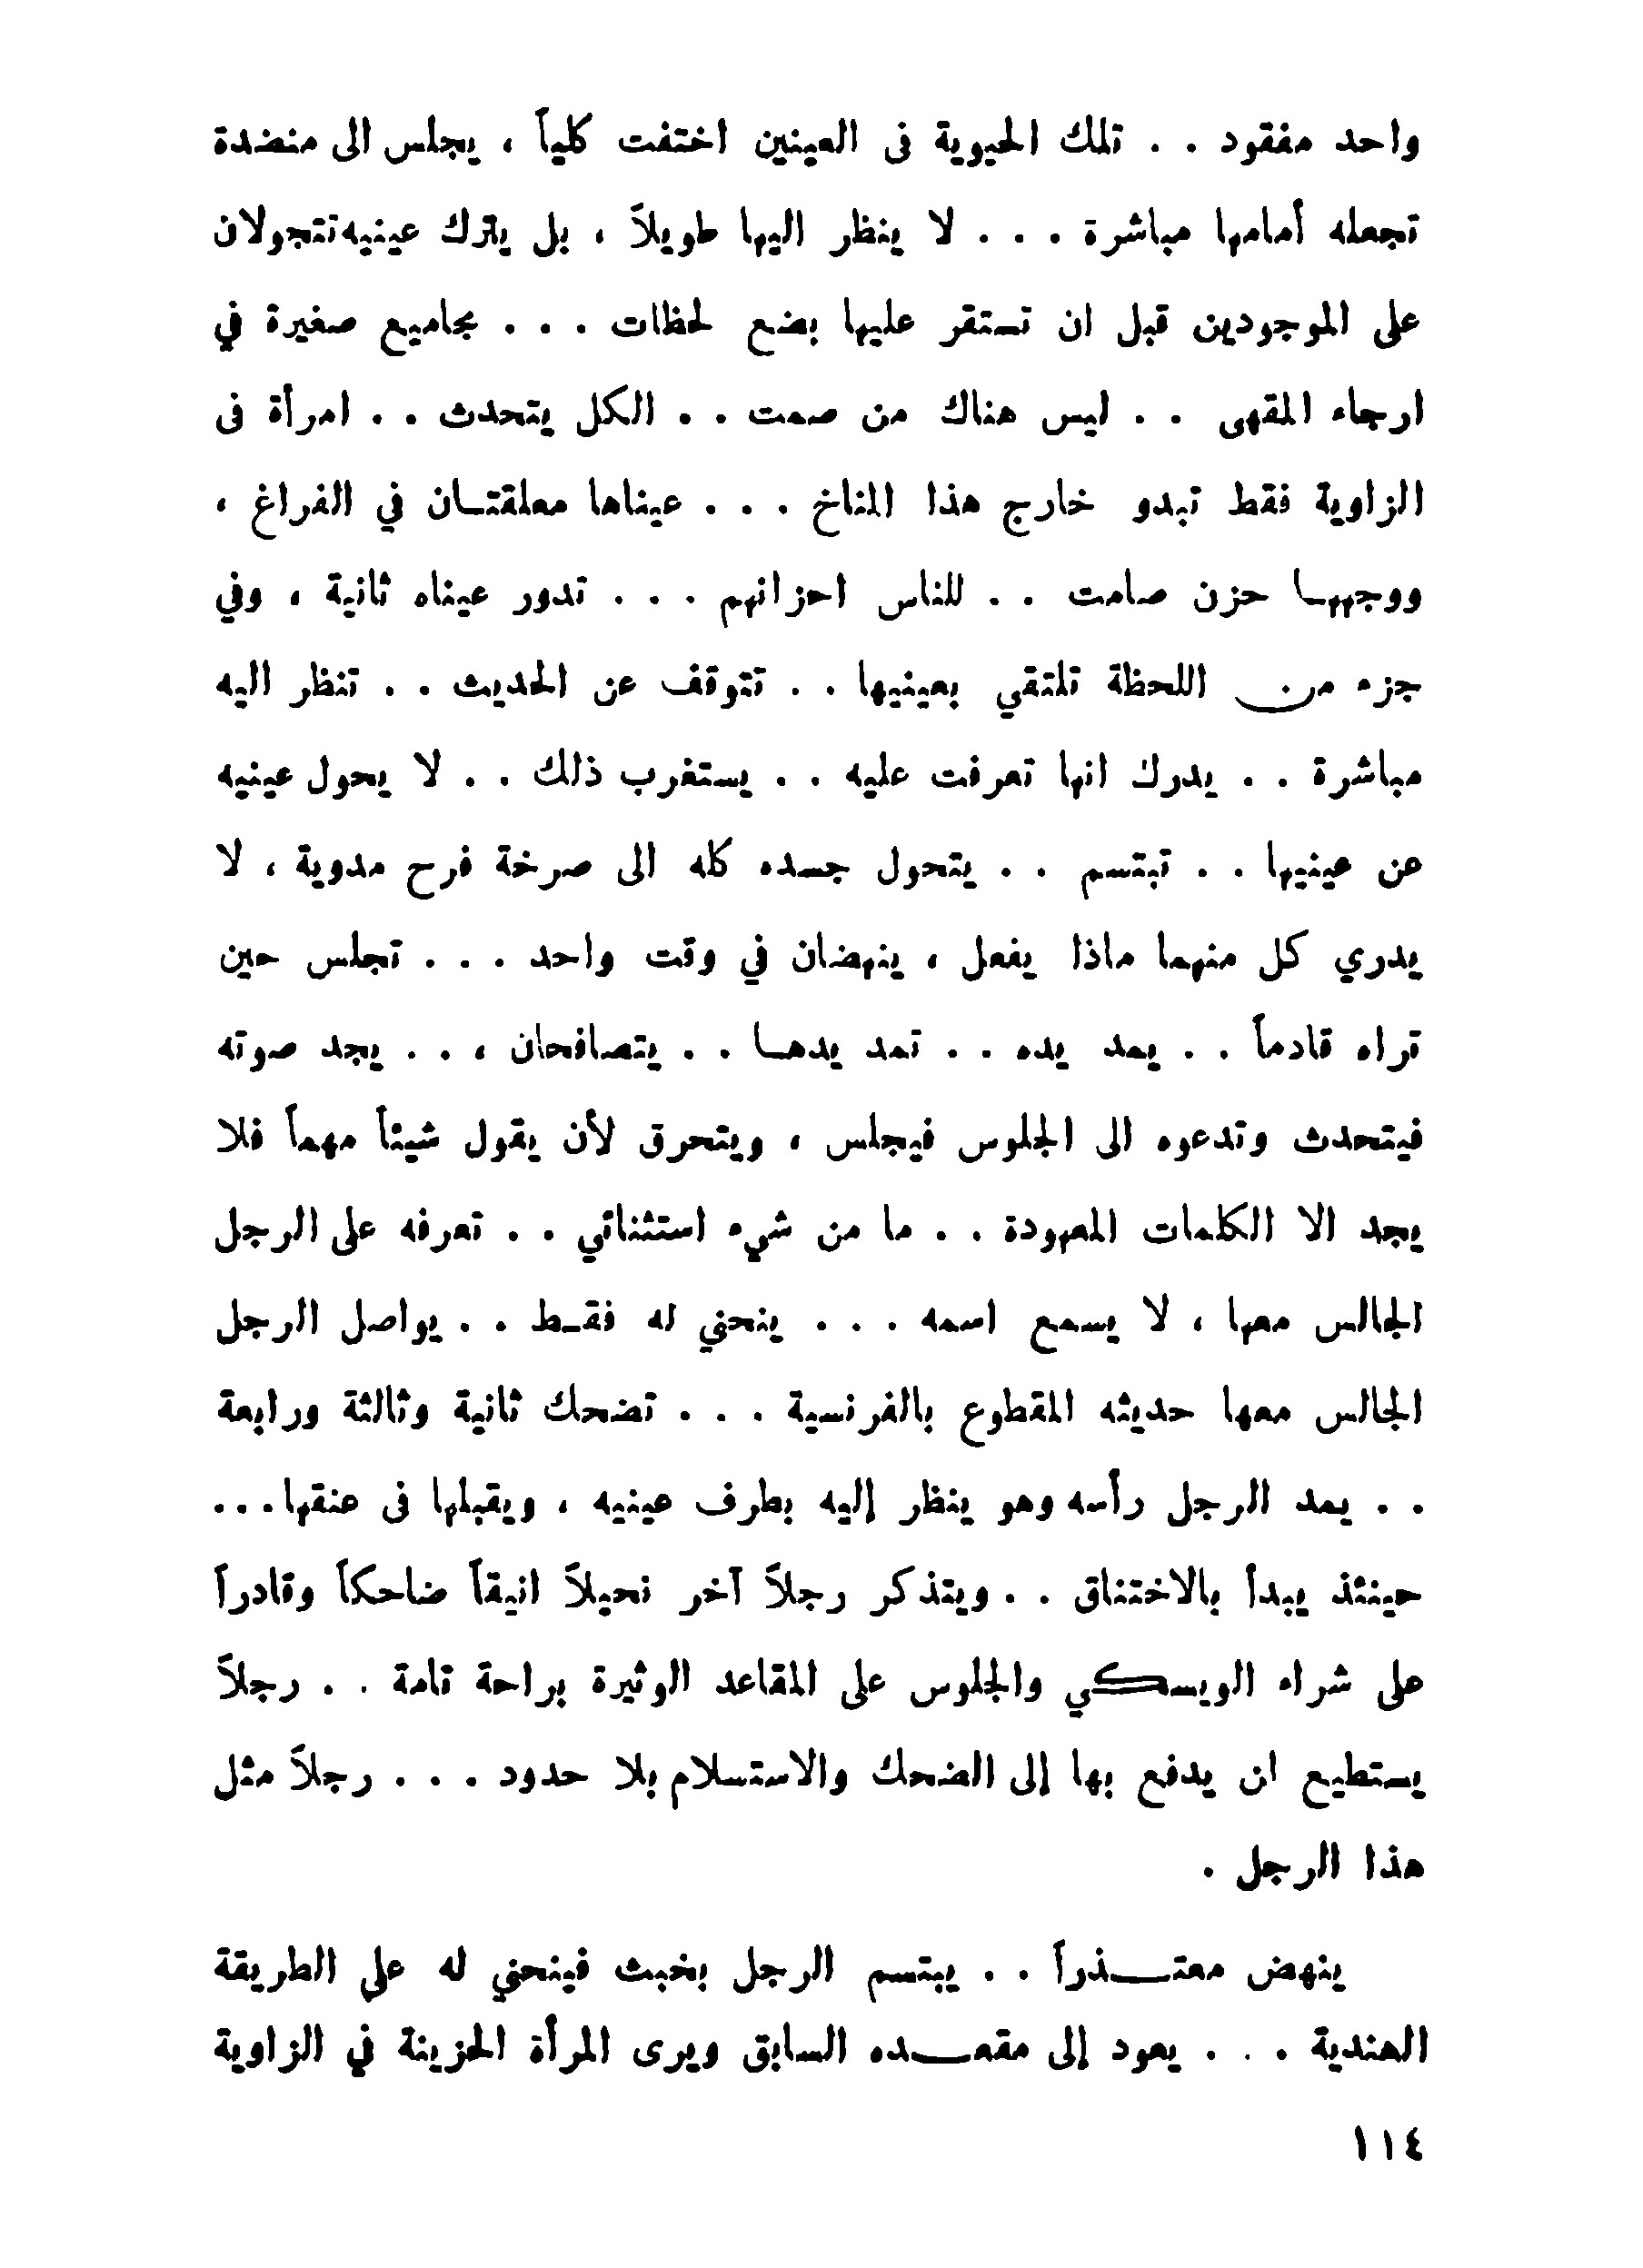 واحد مفقود . . تلك الحيوية فى العينين اختفت كلياً ، يجلس الى منضدة
تجعله أمامها مباشرة . . . لا ينظر اليها طويلاً ، بل يترك عينيه تتجولان
على الموجودين قبل ان تستقر عليها بضع لحظات . . . مجاميع صغيرة في
ارجاء المقهى . . ليس هناك من صمت . . الكل يتحدث . . امرأة فى
الزاوية فقط تبدو خارج هذا المناخ . . . عيناها معلقتان في الفراغ ،
ووجهها حزن صامت . . للناس احزانهم . . . تدور عيناه ثانية ، وفي
جزء من اللحظة تلتقي بعينيها . . تتوقف عن الحديث . . تنظر اليه
مباشرة . . يدرك انها تعرفت عليه . . يستغرب ذلك . . لا يحول عينيه
عن عينيها . . تبتسم . . يتحول جسده كله الى صرخة فرح مدوية ، لا
يدري كل منهما ماذا يفعل ، ينهضان في وقت واحد . . . تجلس حين
تراه قادماً . . يمد يده . . تمد يدها . . يتصافحان ، . . يجد صوته
فيتحدث وتدعوه الى الجلوس فيجلس ، ويتحرق لأن يقول شيئاً مهماً فلا
يجد الا الكلمات المعهودة . . ما من شيء استثنائي . . تعرفه على الرجل
الجالس معها ، لا يسمع اسمه . . . ينحني له فقط . . يواصل الرجل
الجالس معها حديثه المقطوع بالفرنسية . . . تضحك ثانية وثالثة ورابعة
. . يمد الرجل رأسه وهو ينظر إليه بطرف عينيه ، ويقبلها فى عنقها . . .
حينئذ يبدأ بالاختناق . . ويتذكر رجلاً آخر نحيلاً انيقاً ضاحكاً وقادراً
على شراء الويسكي والجلوس على المقاعد الوثيرة براحة تامة . . رجلاً
يستطيع ان يدفع بها إلى الضحك والاستسلام بلا حدود . . . رجلاً مثل
هذا الرجل .
ينهض معتذراً . . يبتسم الرجل بخبث فينحني له على الطريقة
الهندية . . . يعود إلى مقعده السابق ويرى المرأة الحزينة في الزاوية
١١٤